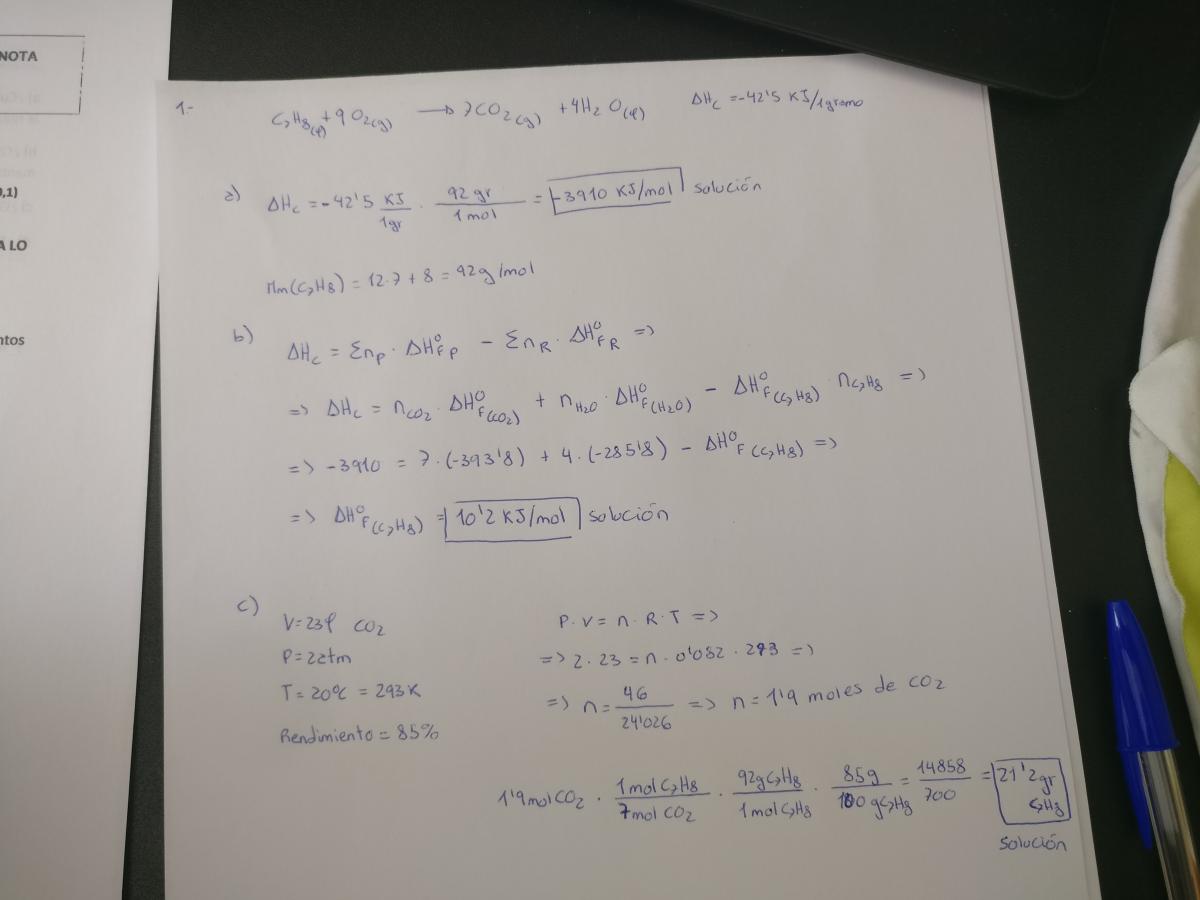 NOTA
0,1)
A LO
ntos
1.-
C7H8(l) + 9O2(g) → 7CO2(g) + 4H2O(l) ΔHc = -42'5 KJ/1gramo
a) ΔHc = -42'5 KJ/1gr · 92 gr/1 mol = -3910 KJ/mol solución
Mm(C7H8) = 12·7 + 8 = 92g/mol
b) ΔHc = Σnp · ΔH°Fp - ΣnR · ΔH°FR =>
=> ΔHc = nCO2 · ΔH°F(CO2) + nH2O · ΔH°F(H2O) - ΔH°F(C7H8) · nC7H8 =>
=> -3910 = 7·(-393'8) + 4·(-285'8) - ΔH°F(C7H8) =>
=> ΔH°F(C7H8) = 10'2 KJ/mol solución
c)
V=23l CO2
P=2atm
T=20ºC = 293K
Rendimiento = 85%
P·V = n·R·T =>
=> 2·23 = n·0'082·293 =>
=> n = 46/24'026 => n = 1'9 moles de CO2
1'9molCO2 · 1molC7H8/7molCO2 · 92gC7H8/1molC7H8 · 85g/100gC7H8 = 14858/700 = 21'2gr C7H8
solución